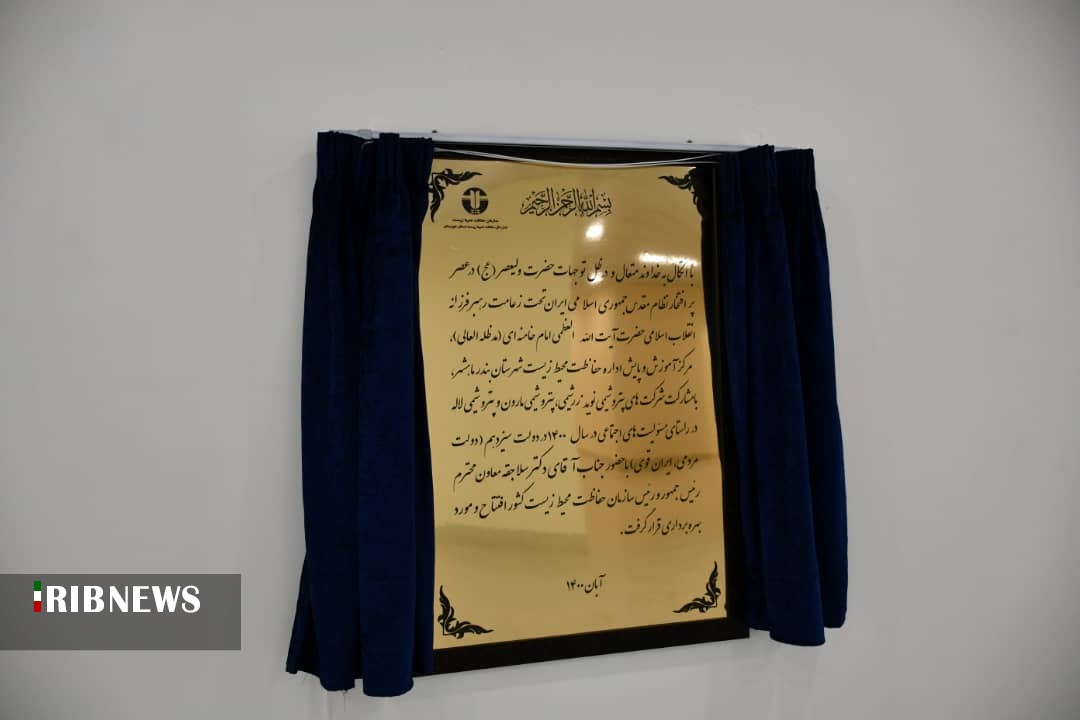 بسم الله الرحمن الرحیم
سازمان حفاظت محیط زیست
اداره کل حفاظت محیط زیست استان خوزستان
با اتکال به خداوند متعال و در ظل توجهات حضرت ولیعصر (عج) در عصر
پر افتخار نظام مقدس جمهوری اسلامی ایران تحت زعامت رهبر فرزانه
انقلاب اسلامی حضرت آیت الله العظمی امام خامنه ای (مدظله العالی)،
مرکز آموزش و پایش اداره حفاظت محیط زیست شهرستان بندر ماهشهر،
با مشارکت شرکت های پتروشیمی نوید زرشیمی، پتروشیمی مارون و پتروشیمی لاله
در راستای مسئولیت های اجتماعی در سال ۱۴۰۰ در دولت سیزدهم (دولت
مردمی، ایران قوی) با حضور جناب آقای دکتر سلاجقه معاون محترم
رئیس جمهور و رئیس سازمان حفاظت محیط زیست کشور افتتاح و مورد
بهره برداری قرار گرفت.
آبان ۱۴۰۰
IRIBNEWS